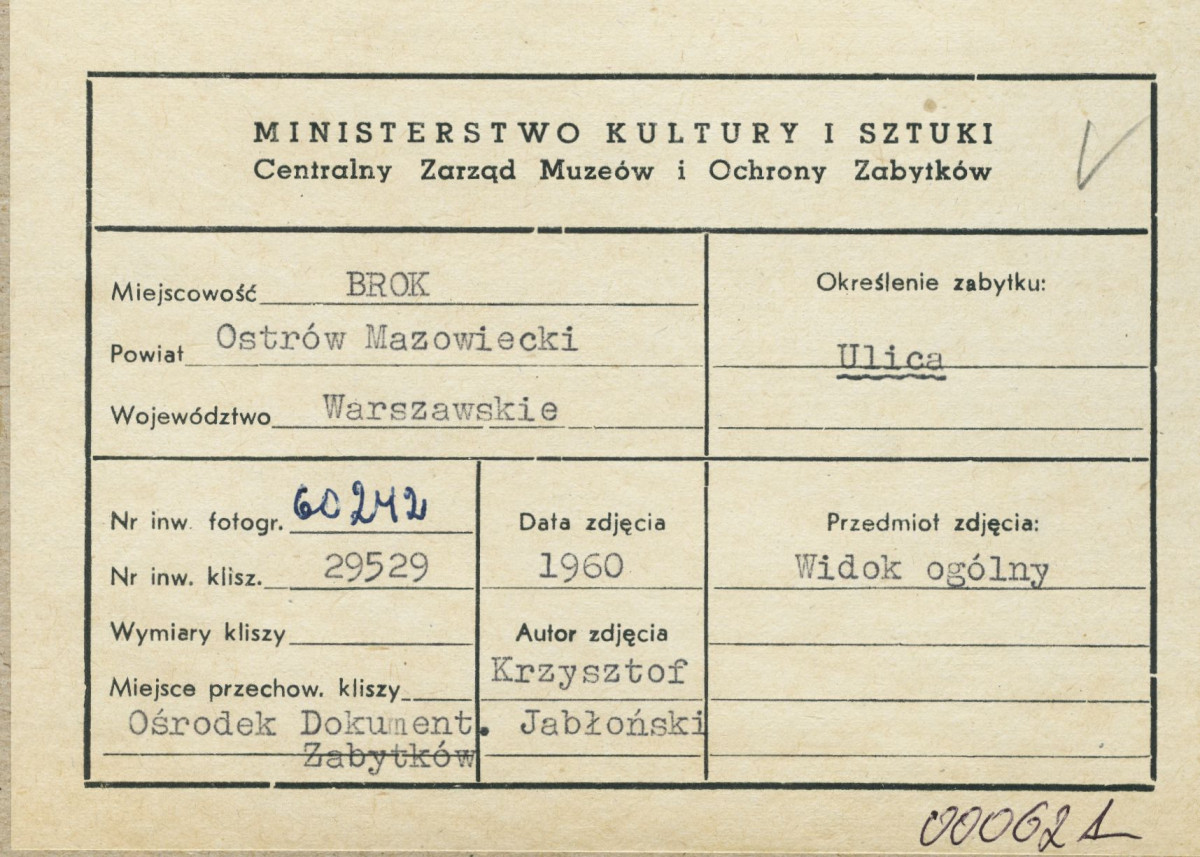 MINISTERSTWO KULTURY I SZTUKI
Centralny Zarząd Muzeów i Ochrony Zabytków
Miejscowość BROK
Powiat Ostrów Mazowiecki
Województwo Warszawskie
Określenie zabytku:
Ulica
Nr inw. fotogr. 60242
Nr inw. klisz. 29529
Wymiary kliszy
Miejsce przechow. kliszy
Ośrodek Dokument.
Zabytków
Data zdjęcia
1960
Autor zdjęcia
Krzysztof
Jabłoński
Przedmiot zdjęcia:
Widok ogólny
000621